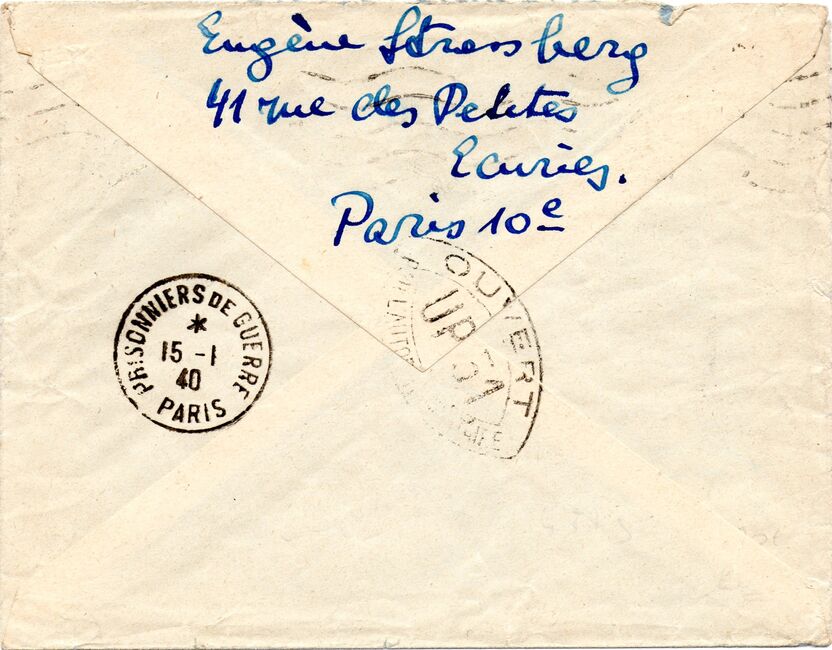 Eugène Strassberg
41 rue des Petites
Ecuries.
Paris 10e
OUVERT
UP
PAR L'AUTORITÉ MILITAIRE
PRISONNIERS DE GUERRE
*
15 - 1
40
PARIS